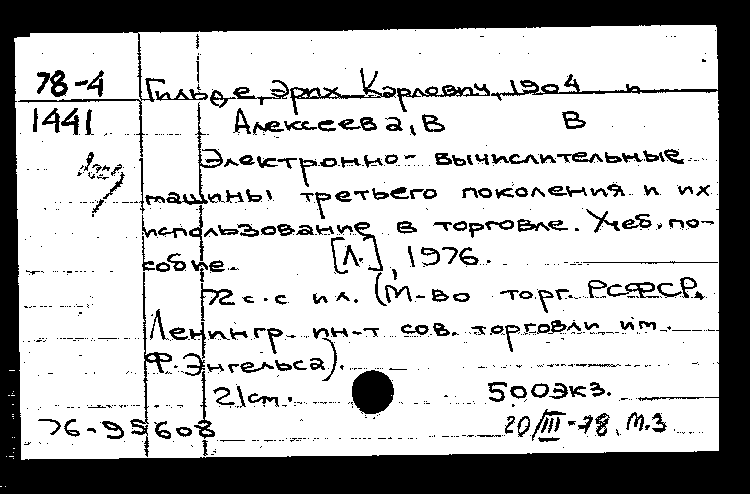 78-4 Гильде, Эрих Карлович, 1904 и
1441 Алексеева, В В
Электронно-вычислительные
машины третьего поколения и их
использование в торговле. Учеб. по-
собие. [Л.], 1976.
72 с. с ил. (М-во торг. РСФСР.
Ленингр. ин-т сов. торговли им.
Ф. Энгельса).
21 см. 500 экз.
76-95608 20/III-78. М.З